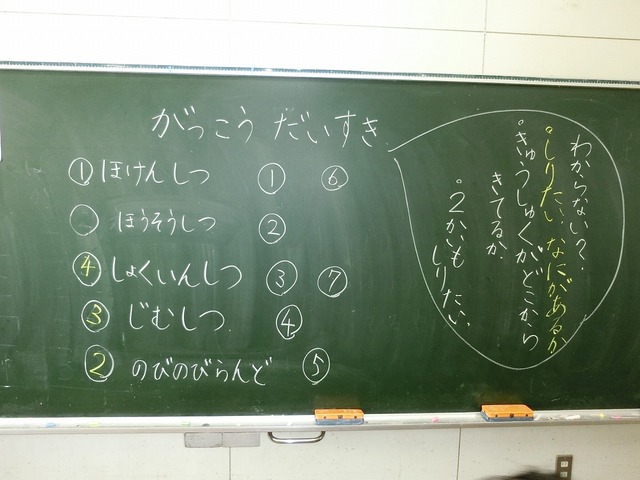 がっこう だいすき
① ほけんしつ ① ⑥
ほうそうしつ ②
④ しょくいんしつ ③ ⑦
③ じむしつ ④
② のびのびらんど ⑤
わからない？
・しりたい なにがあるか
・きゅうしゅくがどこから
きてるか
・2かいも
しりたい